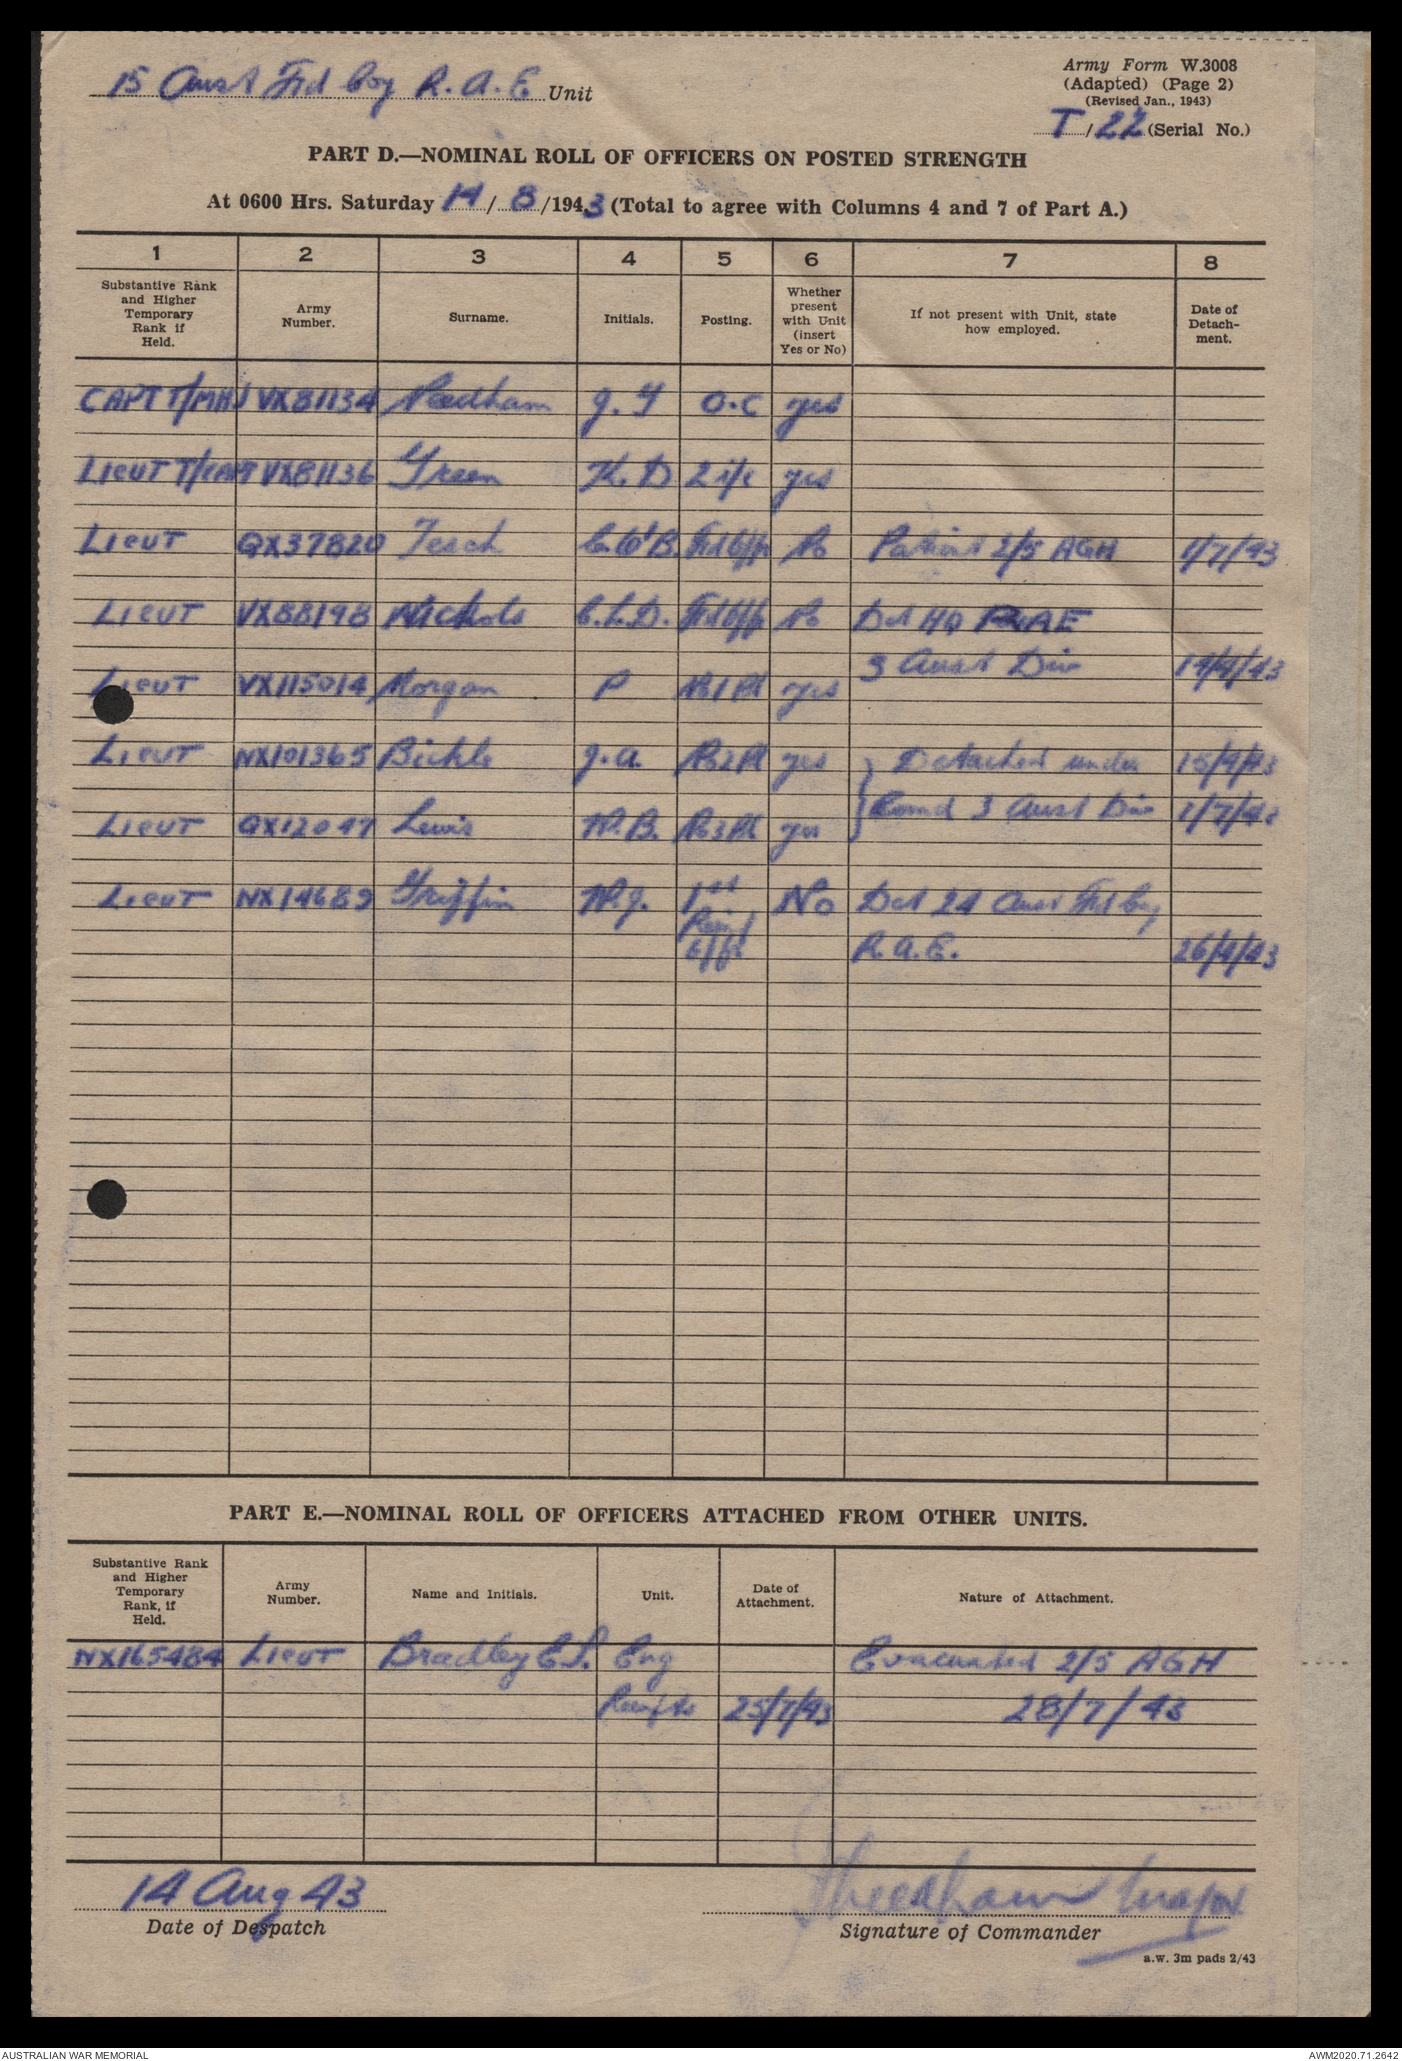 15 Aust Fd Coy R.A.E Unit
Army Form W.3008
(Adapted) (Page 2)
(Revised Jan., 1943)
T/22 (Serial No.)
PART D.—NOMINAL ROLL OF OFFICERS ON POSTED STRENGTH
At 0600 Hrs. Saturday 14/8/1943 (Total to agree with Columns 4 and 7 of Part A.)
1 2 3 4 5 6 7 8
Substantive Rank and Higher Temporary Rank if Held. Army Number. Surname. Initials. Posting. Whether present with Unit (insert Yes or No) If not present with Unit, state how employed. Date of Detach-ment.
CAPT T/MAJ VX81134 Needham J. F O.C yes
LIEUT T/CAPT VX81136 Green K. D 2 i/c yes
LIEUT QX37820 Tesch C.W'B. Fd Offr No Patient 2/5 AGH 1/7/43
LIEUT VX88198 Nichols C.L.D. Fd Offr No Det HQ RAE
3 Aust Div 14/4/43
LIEUT VX115014 Morgan P No 1 Pl yes
LIEUT NX101365 Bickle J.A. No 2 Pl yes Detached under 15/4/43
LIEUT QX12047 Lewis W.B. No 3 Pl yes Comd 3 Aust Div 1/7/43
LIEUT NX14689 Griffin W.J. 1st No Det 24 Aust Fd Coy
Reinf
Offr R.A.E. 26/4/43
PART E.—NOMINAL ROLL OF OFFICERS ATTACHED FROM OTHER UNITS.
Substantive Rank and Higher Temporary Rank, if Held. Army Number. Name and Initials. Unit. Date of Attachment. Nature of Attachment.
NX165484 LIEUT Bradley E.S. Eng Evacuated 2/5 AGH
Reinfts 25/7/43 28/7/43
14 Aug 43
Date of Despatch
JNeedham Major
Signature of Commander
a.w. 3m pads 2/43
AUSTRALIAN WAR MEMORIAL
AWM2020.71.2642